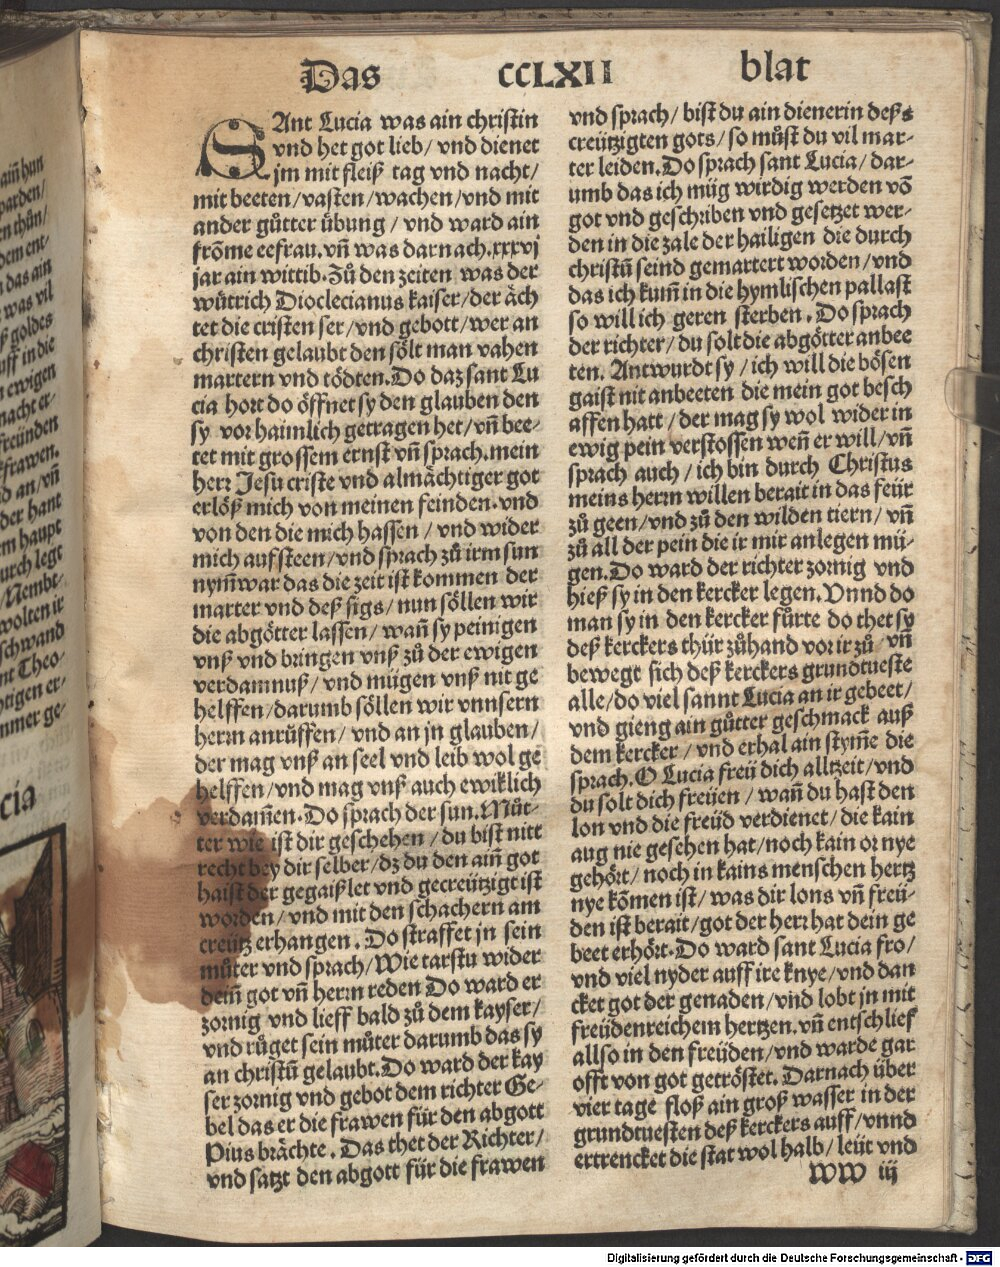 Das CCLXII blat
SAnt Lucia was ain christin
vnd het got lieb/ vnd dienet
jm mit fleiß tag vnd nacht/
mit beeten/vasten/wachen/vnd mit
ander gůtter übung/ vnd ward ain
frõme eefrau.vñ was darnach.xxxvj
jar ain wittib.Zů den zeiten was der
wůtrich Dioclecianus kaiser/der åch
tet die cristen ser/vnd gebott/wer an
christen gelaubt den sölt man vahen
martern vnd tödten.Do daz sant Lu
cia hort do öffnet sy den glauben den
sy vor haimlich getragen het/vñ bee-
tet mit grossem ernst vñ sprach.mein
herr Jesu criste vnd almåchtiger got
erlöß mich von meinen feinden.vnd
von den die mich hassen/ vnd wider
mich aufsteen/vnd sprach zů irm sun
nym̃war das die zeit ist kommen der
marter vnd deß sigs/ nun söllen wir
die abgötter lassen/ wañ sy peinigen
vnß vnd bringen vnß zů der ewigen
verdamnuß/ vnd mügen vnß nit ge
helffen/darumb söllen wir vnnsern
herrn anrůffen/ vnd an jn glauben/
der mag vnß an seel vnd leib wol ge
helffen/vnd mag vnß auch ewiklich
verdam̃en.Do sprach der sun.Můt-
ter wie ist dir geschehen/du bist nitt
recht bey dir selber/dz du den aiñ got
haist der gegaißlet vnd gecreützigt ist
worden/vnd mit den schachern am
creütz erhangen. Do straffet jn sein
můter vnd sprach/Wie tarstu wider
deiñ got vñ herrn reden Do ward er
zornig vnd lieff bald zů dem kayser/
vnd růget sein můter darumb das sy
an christũ gelaubt.Do ward der kay
ser zornig vnd gebot dem richter Ge-
bel das er die frawen für den abgott
Pius bråchte. Das thet der Richter/
vnd satzt den abgott für die frawen
vnd sprach/ bist du ain dienerin deß
creützigten gots/ so můst du vil mar-
ter leiden.Do sprach sant Lucia/ dar-
umb das ich müg wirdig werden võ
got vnd geschriben vnd gesetzet wer-
den in die zale der hailigen die durch
christũ seind gemartert worden/vnd
das ich kum̃ in die hymlischen pallast
so will ich geren sterben. Do sprach
der richter/du solt die abgötter anbee
ten. Antwurdt sy/ich will die bösen
gaist nit anbeeten die mein got besch
affen hatt/der mag sy wol wider in
ewig pein verstossen weñ er will/vñ
sprach auch/ich bin durch Christus
meins herrn willen berait in das feür
zů geen/vnd zů den wilden tiern/ vñ
zů all der pein die ir mir anlegen mü-
gen.Do ward der richter zornig vnd
hieß sy in den kercker legen. Vnnd do
man sy in den kercker fůrte do thet sy
deß kerckers thür zůhand vor ir zů vñ
bewegt sich deß kerckers grundtueste
alle/do viel sannt Lucia an ir gebeet/
vnd gieng ain gůtter geschmack auß
dem kercker/vnd erhal ain stym̃e die
sprach.O Lucia freü dich alltzeit/vnd
du solt dich freüen/ wañ du hast den
lon vnd die freüd verdienet/die kain
aug nie gesehen hat/noch kain or nye
gehört/noch in kains menschen hertz
nye kõmen ist/ was dir lons vñ freü-
den ist berait/got der herr hat dein ge
beet erhört.Do ward sant Lucia fro/
vnd viel nyder auff ire knye/vnd dan
cket got der genaden/vnd lobt jn mit
freüdenreichem hertzen.vñ entschlief
allso in den freüden/vnd warde gar
offt von got getröstet. Darnach über
vier tage floß ain groß wasser in der
grundtuesten deß kerckers auff/vnnd
ertrencket die stat wol halb/leüt vnd
WW iij
aiñ hun
parden/
en thůn/
dem ent-
das ain
was vil
goldes
uff in die
n ewigen
nacht er/
freünden
frawen.
d an/vñ
der hant
m haupt
urch legt
/Nembt-
wolten ir
schwand
nt Theo-
htigen er-
mmer ge-
cia
Digitalisierung gefördert durch die Deutsche Forschungsgemeinschaft - DFG